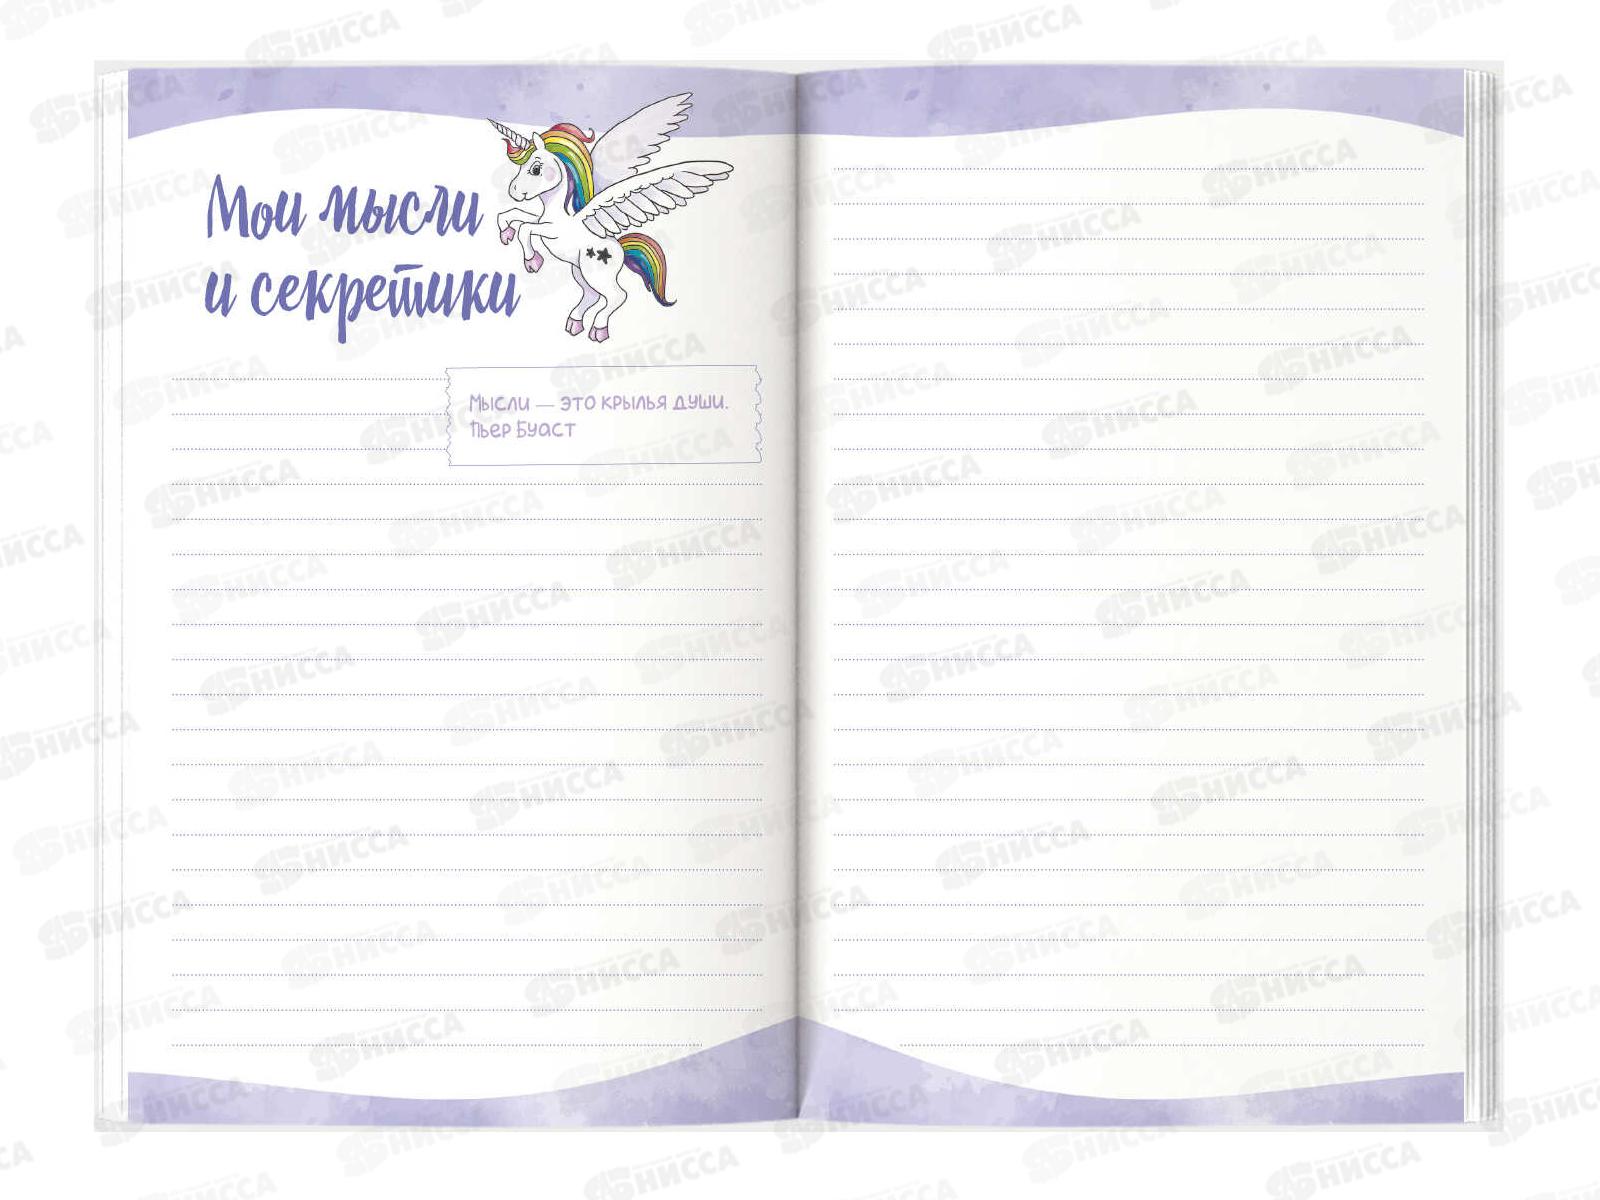 Мои мысли
и секретики
Мысли — это крылья души.
Пьер Буаст
НИССА